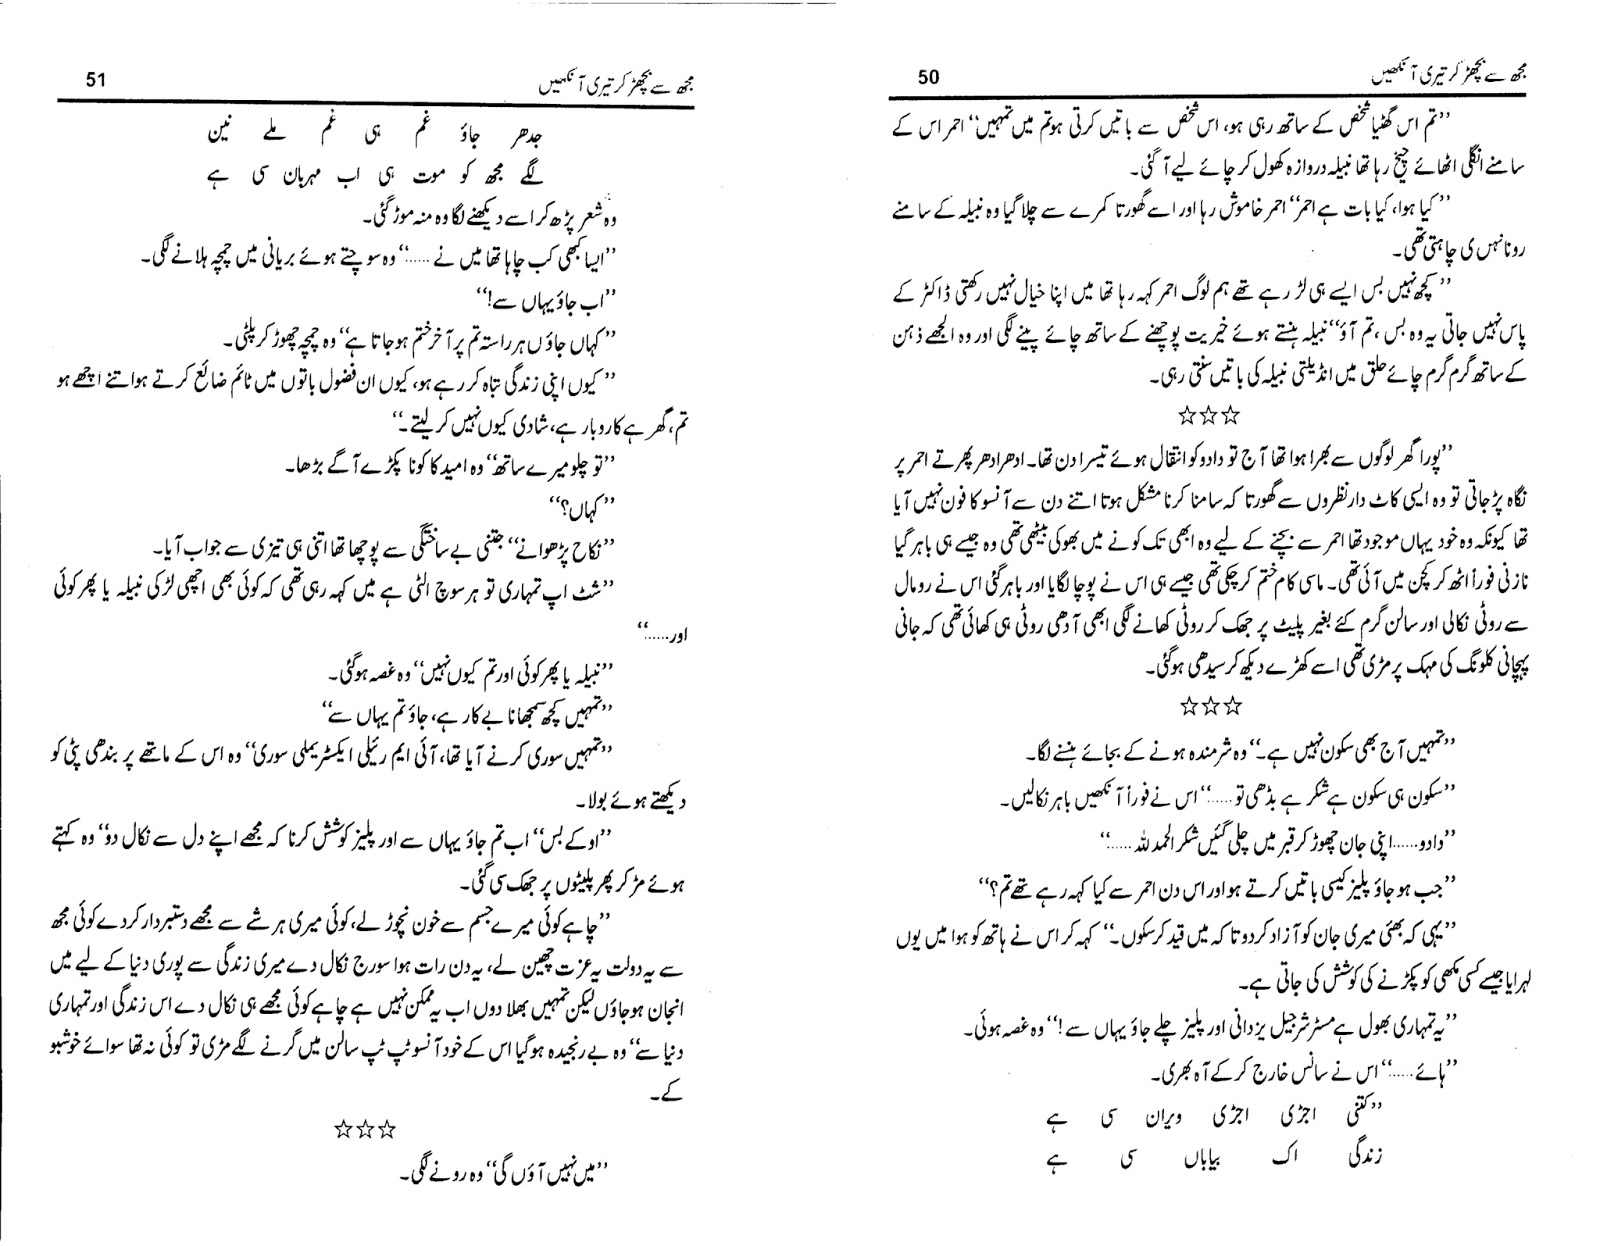 مجھ سے بچھڑ کر تیری آنکھیں
50
”تم اس گھٹیا شخص کے ساتھ رہی ہو، اس شخص سے باتیں کرتی ہو تم میں تمہیں“ احمر اس کے
سامنے انگلی اٹھائے چیخ رہا تھا نبیلہ دروازہ کھول کر چائے لیے آ گئی۔
”کیا ہوا، کیا بات ہے احمر“ احمر خاموش رہا اور اسے گھورتا کمرے سے چلا گیا وہ نبیلہ کے سامنے
رونا نہیں چاہتی تھی۔
”کچھ نہیں بس ایسے ہی لڑ رہے تھے ہم لوگ احمر کہہ رہا تھا میں اپنا خیال نہیں رکھتی ڈاکٹر کے
پاس نہیں جاتی یہ وہ بس، تم آؤ“ نبیلہ ہنستے ہوئے خیریت پوچھنے کے ساتھ چائے پینے لگی اور وہ الجھے ذہن
کے ساتھ گرم گرم چائے حلق میں انڈیلتی نبیلہ کی باتیں سنتی رہی۔
☆☆☆
”پورا گھر لوگوں سے بھرا ہوا تھا آج تو دادو کو انتقال ہوئے تیسرا دن تھا۔ ادھر ادھر پھرتے احمر پر
نگاہ پڑ جاتی تو وہ ایسی کاٹ دار نظروں سے گھورتا کہ سامنا کرنا مشکل ہوتا اتنے دن سے آنسو کا فون نہیں آیا
تھا کیونکہ وہ خود یہاں موجود تھا احمر سے بچنے کے لیے وہ ابھی تک کونے میں بھوکی بیٹھی تھی وہ جیسے ہی باہر گیا
نازنی فوراً اٹھ کر کچن میں آئی تھی۔ ماسی کام ختم کر چکی تھی جیسے ہی اس نے پوچا لگایا اور باہر گئی اس نے رومال
سے روٹی نکالی اور سالن گرم کئے بغیر پلیٹ پر جھک کر روٹی کھانے لگی ابھی آدھی روٹی ہی کھائی تھی کہ جانی
پہچانی کلونگ کی مہک پر مڑی تھی اسے کھڑے دیکھ کر سیدھی ہو گئی۔
☆☆☆
”تمہیں آج بھی سکون نہیں ہے۔“ وہ شرمندہ ہونے کے بجائے ہنسنے لگا۔
”سکون ہی سکون ہے شکر ہے بڈھی تو……“ اس نے فوراً آنکھیں باہر نکالیں۔
”دادو……اپنی جان چھوڑ کر قبر میں چلی گئیں شکر الحمدللہ ……“
”جب ہو جاؤ پلیز کیسی باتیں کرتے ہو اور اس دن احمر سے کیا کہہ رہے تھے تم؟“
”یہی کہ بھئی میری جان کو آزاد کر دو تا کہ میں قید کر سکوں۔“ کہہ کر اس نے ہاتھ کو ہوا میں یوں
لہرایا جیسے کسی مکھی کو پکڑنے کی کوشش کی جاتی ہے۔
”یہ تمہاری بھول ہے مسٹر شرجیل یزدانی اور پلیز چلے جاؤ یہاں سے!“ وہ غصہ ہوئی۔
”ہائے……“ اس نے سانس خارج کر کے آہ بھری۔
”کتنی اجڑی اجڑی ویران سی ہے
زندگی اک بیاباں سی ہے
مجھ سے بچھڑ کر تیری آنکھیں
51
جدھر جاؤ غم ہی غم ملے نین
لگے مجھ کو موت ہی اب مہربان سی ہے
وہ شعر پڑھ کر اسے دیکھنے لگا وہ منہ موڑ گئی۔
”ایسا کبھی کب چاہا تھا میں نے ……“ وہ سوچتے ہوئے بریانی میں چمچہ ہلانے لگی۔
”اب جاؤ یہاں سے!“
”کہاں جاؤں ہر راستہ تم پر آ خر ختم ہو جاتا ہے“ وہ چمچہ چھوڑ کر پلٹی۔
”کیوں اپنی زندگی تباہ کر رہے ہو، کیوں ان فضول باتوں میں ٹائم ضائع کرتے ہو اتنے اچھے ہو
تم، گھر ہے کاروبار ہے، شادی کیوں نہیں کر لیتے۔“
”تو چلو میرے ساتھ“ وہ امید کا کونا پکڑے آگے بڑھا۔
”کہاں؟“
”نکاح پڑھوانے“ جتنی بے ساختگی سے پوچھا تھا اتنی ہی تیزی سے جواب آیا۔
”شٹ اپ تمہاری تو ہر سوچ الٹی ہے میں کہہ رہی تھی کہ کوئی بھی اچھی لڑکی نبیلہ یا پھر کوئی
اور……“
”نبیلہ یا پھر کوئی اور تم کیوں نہیں“ وہ غصہ ہو گئی۔
”تمہیں کچھ سمجھانا بے کار ہے، جاؤ تم یہاں سے“
”تمہیں سوری کرنے آیا تھا، آئی ایم رئیلی ایکسٹریملی سوری“ وہ اس کے ماتھے پر بندھی پٹی کو
دیکھتے ہوئے بولا۔
”اوکے بس“ اب تم جاؤ یہاں سے اور پلیز کوشش کرنا کہ مجھے اپنے دل سے نکال دو“ وہ کہتے
ہوئے مڑ کر پھر پلیٹوں پر جھک سی گئی۔
”چاہے کوئی میرے جسم سے خون نچوڑ لے، کوئی میری ہر شے سے مجھے دستبردار کر دے کوئی مجھ
سے یہ دولت یہ عزت چھین لے، یہ دن رات ہوا سورج نکال دے میری زندگی سے پوری دنیا کے لیے میں
انجان ہو جاؤں لیکن تمہیں بھلا دوں اب یہ ممکن نہیں ہے چاہے کوئی مجھے ہی نکال دے اس زندگی اور تمہاری
دنیا سے“ وہ بے رنجیدہ ہو گیا اس کے خود آنسو ٹپ ٹپ سالن میں گرنے لگے مڑی تو کوئی نہ تھا سوائے خوشبو
کے۔
☆☆☆
”میں نہیں آؤں گی“ وہ رونے لگی۔